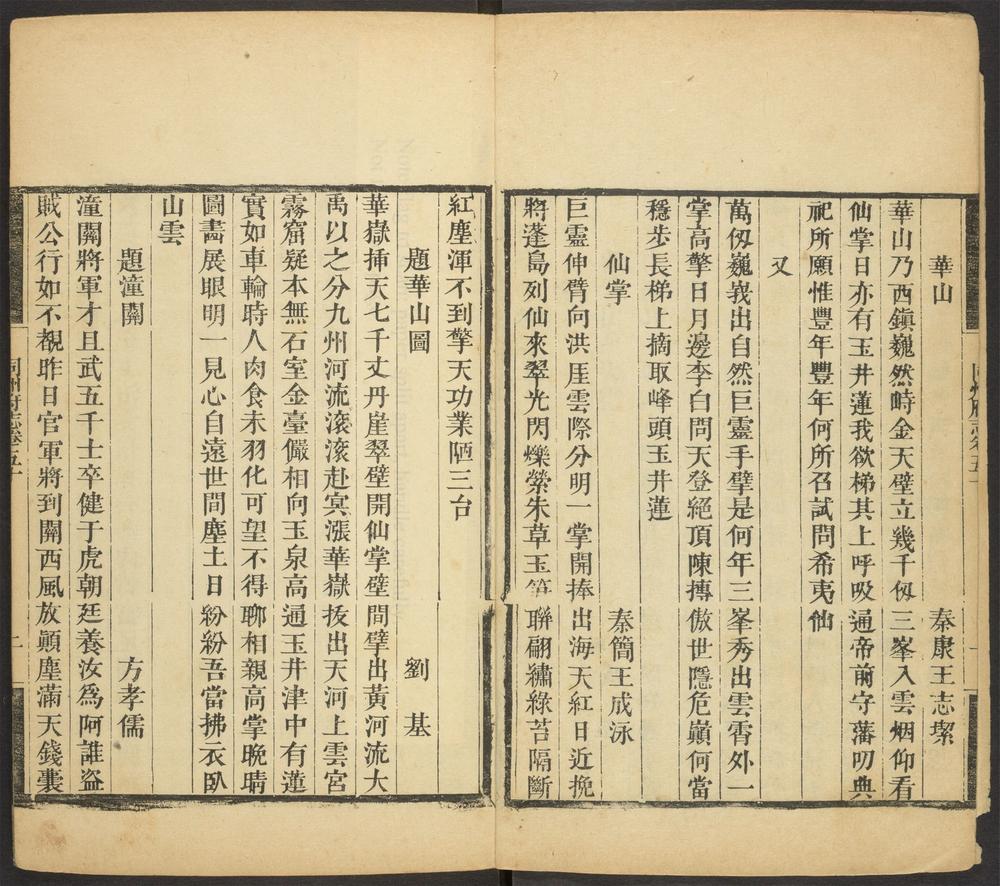 華山　秦康王志𡐤
華山乃西鎮巍然時金天壁立幾千仭三峯入雲烟仰看
仙掌日亦有玉井蓮我欲梯其上呼吸通帝前守藩叨典
祀所願惟豐年豐年何所召試問希夷仙
又
萬仭巍峩出自然巨靈手擘是何年三峯秀出雲霄外一
掌高擎日月邊李白問天登絕頂陳摶傲世隱危巔何當
穩步長梯上摘取峰頭玉井蓮
仙掌　秦簡王成泳
巨靈伸臂向洪厓雲際分明一掌開捧出海天紅日近挽
將蓬島列仙來翠光閃爍縈朱草玉筍聯翩繡綠苔隔斷
紅塵渾不到擎天功業陋三台
題華山圖　劉基
華嶽揷天七千丈丹崖翠壁開仙掌壁間擘出黃河流大
禹以之分九州河流滾滾赴㝠漲華嶽拔出天河上雲宮
霧窟疑本無石室金臺儼相向玉泉高通玉井津中有蓮
實如車輪時人肉食未羽化可望不得聊相親高掌晚晴
圖畵展眼明一見心自遠世間塵土日紛紛吾當拂衣臥
山雲
題潼關　方孝儒
潼關將軍才且武五千士卒健于虎朝廷養汝爲阿誰盜
賊公行如不覩昨日官軍將到關西風放顚塵滿天錢囊
同州府志卷五十